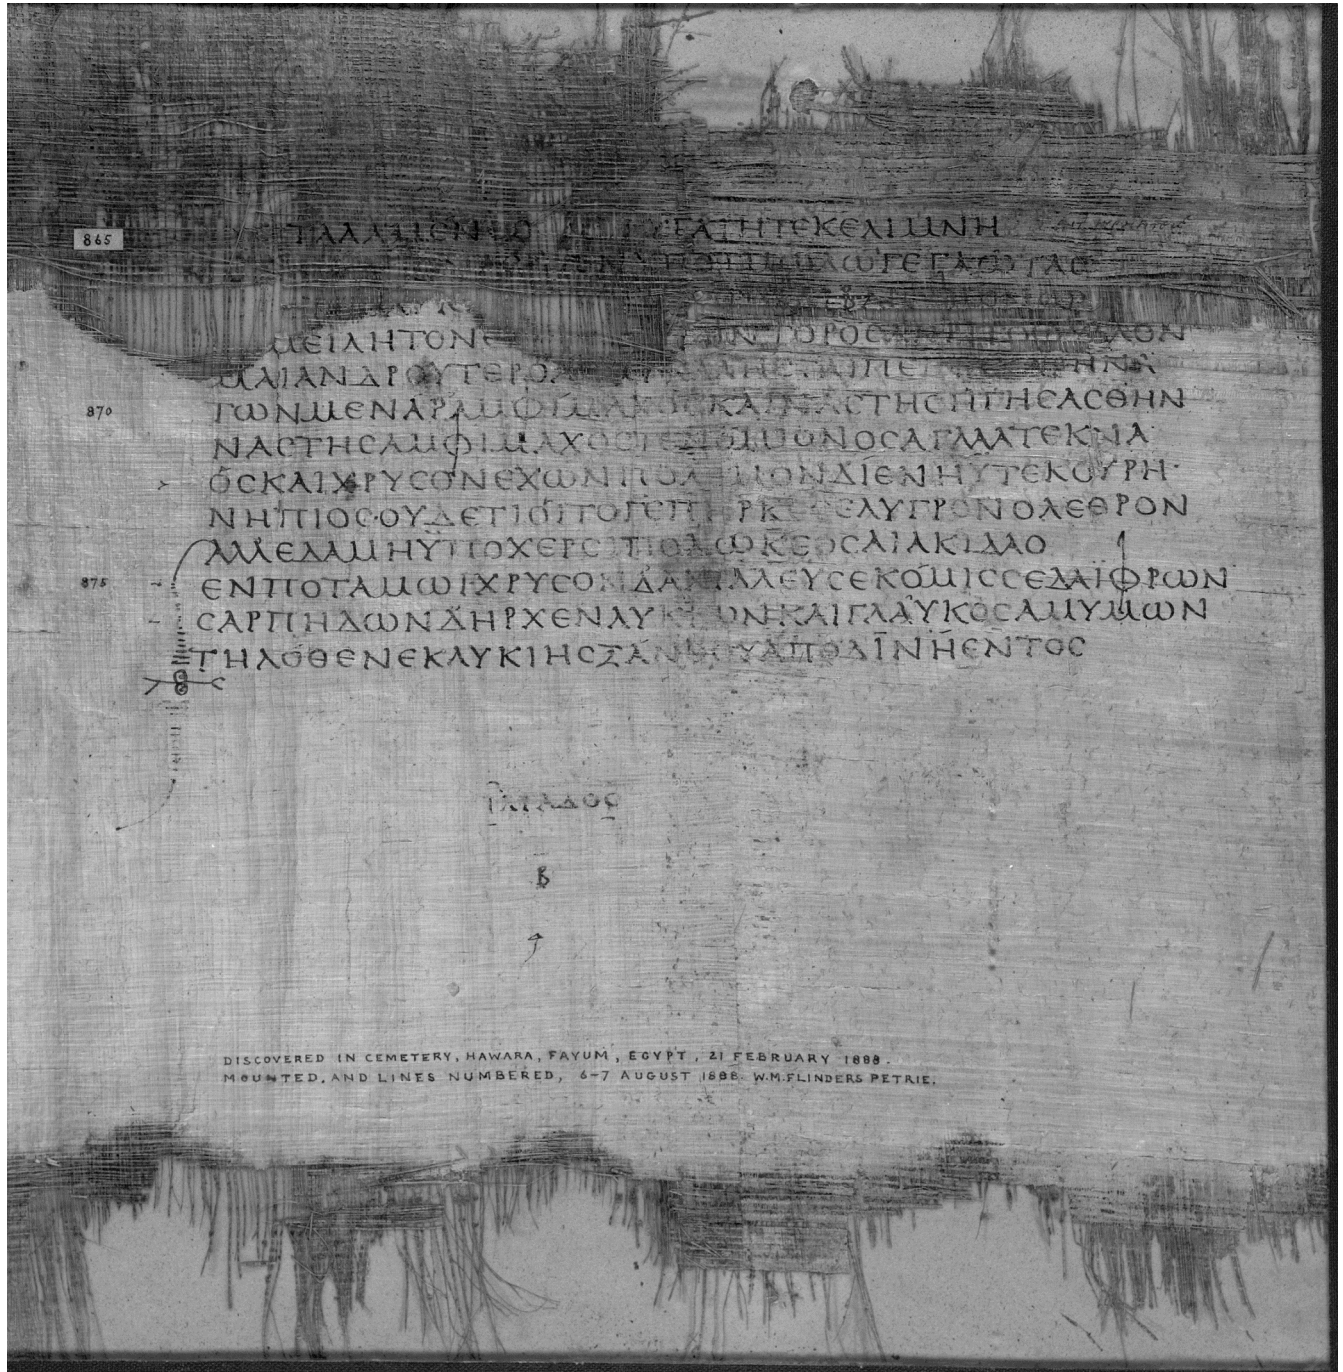 865 ΤΑΛΑΙΜΕΝΕΟ ΥΓΑΤΗΤΕΚΕΛΙΜΝΗ
ΓΕΓΑΩΤΑΣ
ΜΕΙΛΗΤΟΝΕ ΟΡΟΣ
ΜΑΙΑΝΔΡΟΥΤΕΡΟΑ ΗΝΑ
870 ΤΩΝΜΕΝΑΡΑΜΦΙΜΑΧΟΣΚΑΙΝΑΣΤΗΣΗΓΗΣΑΣΘΗΝ
ΝΑΣΤΗΣΑΜΦΙΜΑΧΟΣΤΕΝΟΜΙΟΝΟΣΑΓΛΑΑΤΕΚΝΑ
ΟΣΚΑΙΧΡΥΣΟΝΕΧΩΝΠΟΛΕΜΟΝΔΙΕΝΗΥΤΕΚΟΥΡΗ
ΝΗΠΙΟΣ·ΟΥΔΕΤΙΟΙΤΟΓΕΠΗΡΚΕΣΕΛΥΓΡΟΝΟΛΕΘΡΟΝ
ΑΛΛΕΔΑΜΗΥΠΟΧΕΡΣΙΠΟΔΩΚΕΟΣΑΙΑΚΙΔΑΟ
875 ΕΝΠΟΤΑΜΩΙΧΡΥΣΟΝΔΑΧΙΛΛΕΥΣΕΚΟΜΙΣΣΕΔΑΪΦΡΩΝ
ΣΑΡΠΗΔΩΝΔΗΡΧΕΝΛΥΚΙΩΝΚΑΙΓΛΑΥΚΟΣΑΜΥΜΩΝ
ΤΗΛΟΘΕΝΕΚΛΥΚΙΗΣΞΑΝΘΟΥΑΠΟΔΙΝΗΕΝΤΟΣ
ΙΛΙΑΔΟΣ
Β
DISCOVERED IN CEMETERY, HAWARA, FAYUM, EGYPT, 21 FEBRUARY 1888.
MOUNTED, AND LINES NUMBERED, 6-7 AUGUST 1888. W.M.FLINDERS PETRIE.